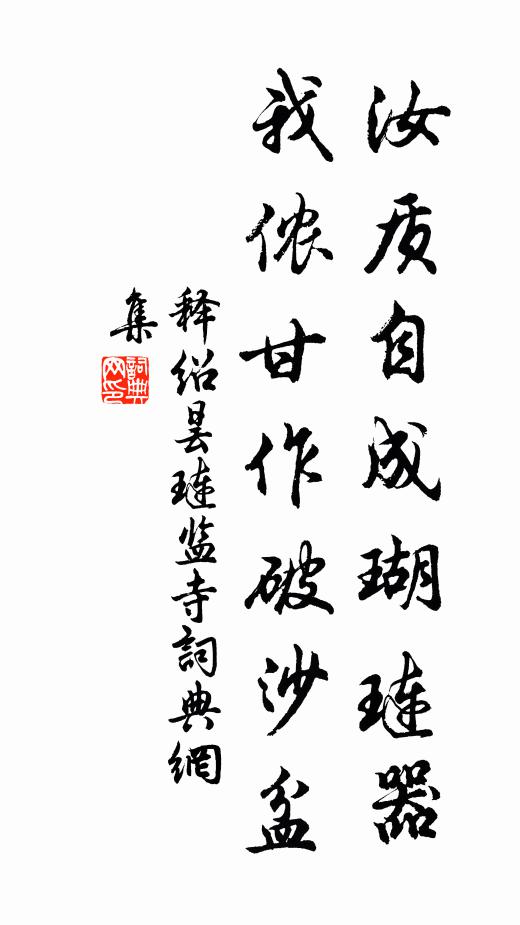 汝质自成瑚琏器
我侬甘作破沙盆
释绍昙琏监寺詞典網
集
詞典网印